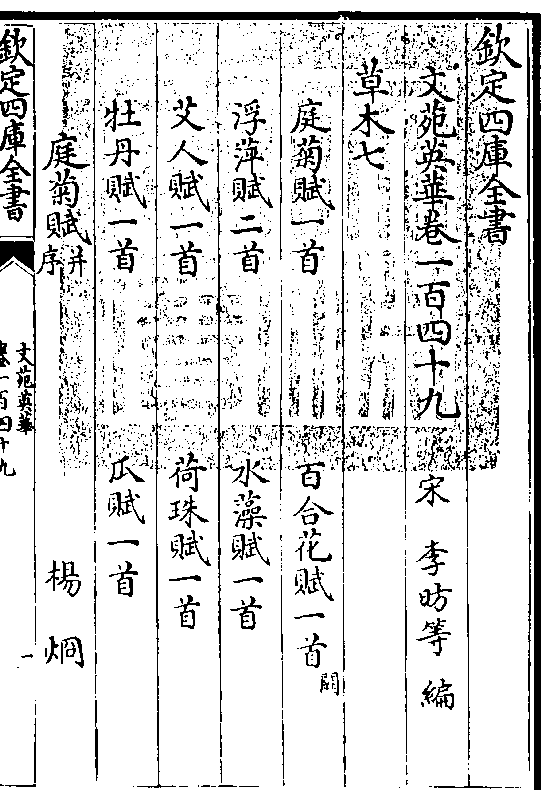 欽定四庫全書
文苑英華卷一百四十九 宋 李昉等 編
草木七
庭菊賦一首 百合花賦一首 闕
浮萍賦二首 水藻賦一首
艾人賦一首 荷珠賦一首
牡丹賦一首 瓜賦一首
庭菊賦 并序 楊烱
欽定四庫全書
文苑英華
卷一百四十九
一